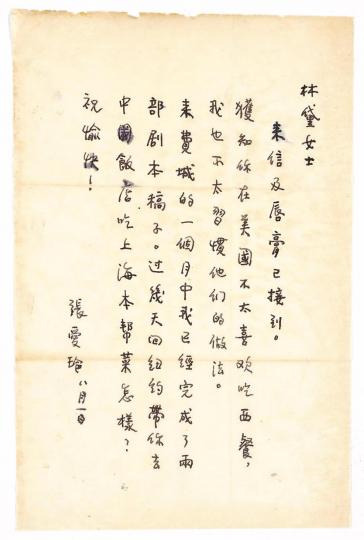 林黛女士
來信及唇膏已接到。
獲知你在美國不太喜欢吃西餐，
我也不太習慣他們的做法。
來費城的一個月中我已經完成了兩
部剧本稿子。过幾天回紐約帶你去
中國飯店吃上海本幫菜怎樣？
祝愉快！
張愛玲八月一日